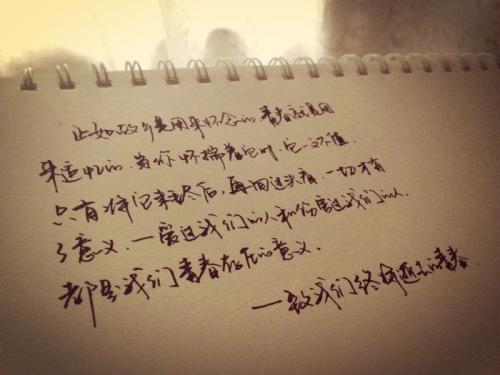 正如故乡是用来怀念的青春就是用
来追忆的,当你怀揣着它时,它一文不值.
只有将它耗尽后,再回过头看,一切才有
了意义.—爱过我们的人和伤害过我们的人.
都是我们青春存在的意义.
—致我们终将逝去的青春.